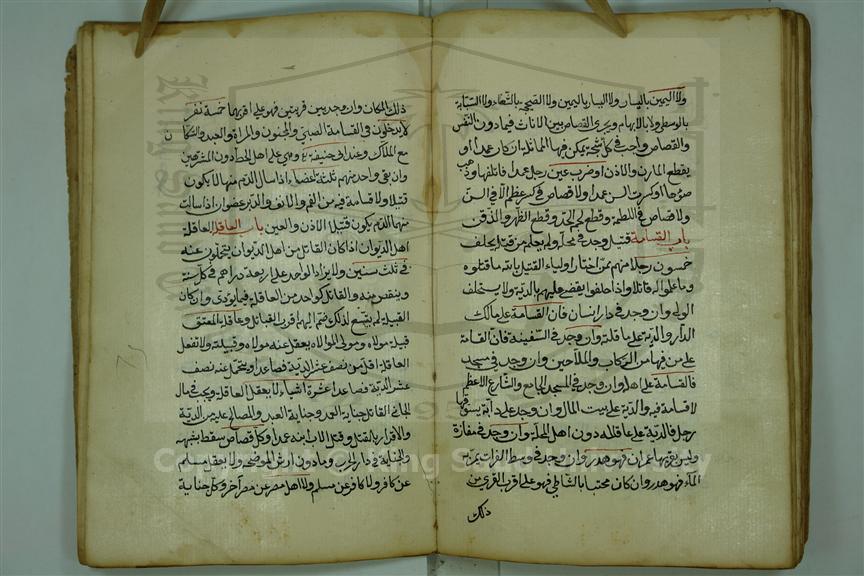 ولا اليمين باليسار ولا اليسار باليمين ولا الصحيحة بالشلاء ولا السبابة
بالوسطى ولا بالابهام ويجرى القصاص بين الاناث فيما دون النفس
والقصاص واجب في كل شجة يمكن فيها المماثلة ان كان عمدا او
يقطع المارن والاذن او ضرب عين رجل عمدا فابتلعها وذهب
ضوءها او كسرت السن عمدا ولا قصاص في كسر عظم الا في السن
ولا قصاص في اللطمة وقطع لحم الخد وقطع الظهر والذقن
باب القسامة قتيل وجد في محلة ولم يعلم من قتله يحلف
خمسون رجلا منهم ممن اختار اولياء القتيل بالله ما قتلوه
وما علموا له قاتلا واذا حلفوا يقضى عليهم بالدية ولا يستحلف
الولي وان وجد في دار انسان فان القسامة على مالك
الدار والدية على عاقلته وان وجد في السفينة فان القسامة
على من فيها من الركاب والملاحين وان وجد في مسجد
فالقسامة على اهلها وان وجد في المسجد الجامع والشارع الاعظم
لا قسامة فيه والدية على بيت المال وان وجد على دابة يسوقها
رجل فالدية على عاقلته دون اهل المحلة وان وجد في مفازة
وليس بقربها عمران فهو هدر وان وجد في وسط الفرات يمر به
الماء فهو هدر وان كان محتبسا بالشاطئ فهو على اقرب القرى من
ذلك
ذلك المكان وان وجد بين قريتين فهو على اقربهما خمسة نفر
لا يدخلون في القسامة الصبي والمجنون والمراة والعبد والسكان
مع الملاك وعند ابي حنيفة هي على اهل الخطة دون المشترين
وان بقى واحد منهم ثلثة اعضاء اذا سال الدم منها لا يكون
قتيلا ولا قسامة فيه من الفم والانف والدبر عضوان اذا سالت
منها الدم يكون قتيلا الاذن والعين باب العاقلة العاقلة
اهل الديوان اذا كان القاتل من اهل الديوان يتحملون عنه
في ثلث سنين ولا يزاد الواحد على اربعة دراهم في كل سنة
وينقص منه والقاتل كواحد من العاقلة فيما يؤدى وان كان
القبيلة لم يتسع لذلك ضم اليها اقرب القبائل وعاقلة المعتق
قبيلة مولاه ومولى الموالاة يعقل عنه مولاه وقبيلته ولا تعقل
العاقلة اقل من نصف عشر الدية فصاعدا ويتحمل عنه نصف
عشر الدية فصاعدا عشرة اشياء لا يعقل العاقلة ويجب في مال
الجاني القاتل جناية العمد وجناية العبد والمصالح عليه من الدية
والاقرار بالقتل وقتل الاب ابنه عمدا وكل قصاص سقط بشبهة
والجناية في دار الحرب وما دون ارش الموضحة ولا يعقل مسلم
عن كافر ولا كافر عن مسلم ولا اهل مصر عن مصر آخر وكل جناية
Copyright © King Saud University